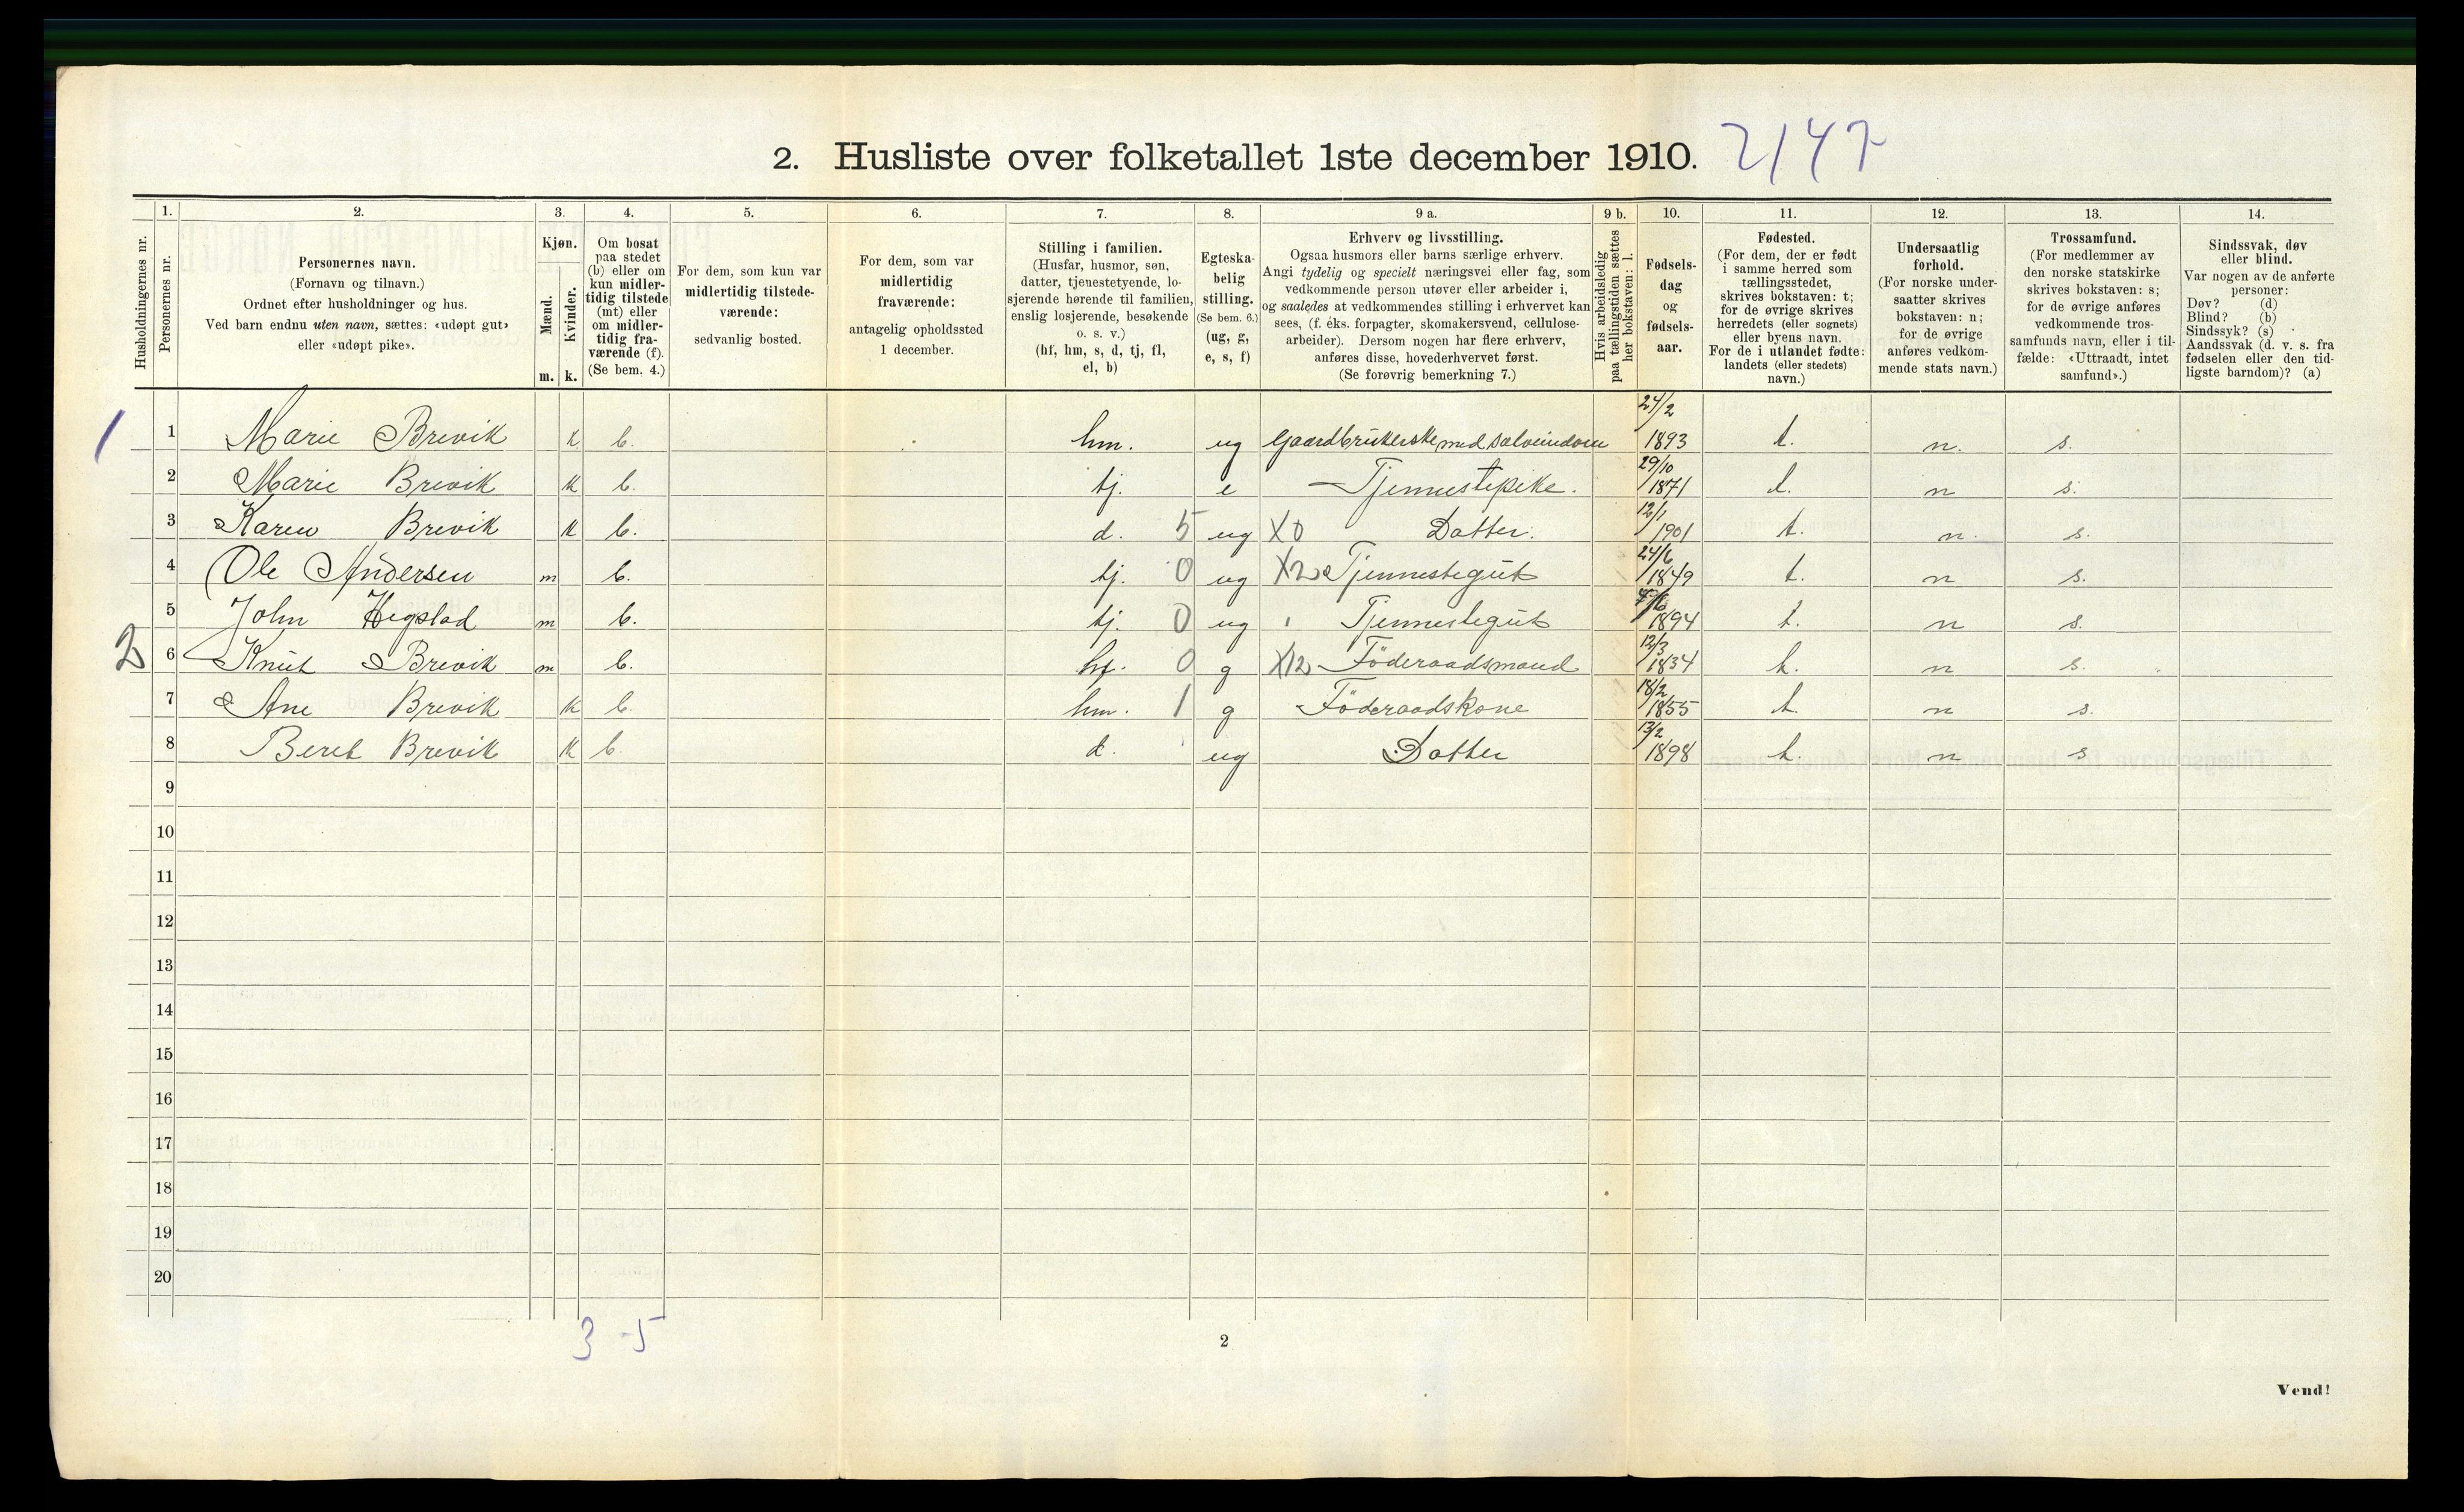 2. Husliste over folketallet 1ste december 1910. 2147
1. 2. 3. 4. 5. 6. 7. 8. 9 a. 9 b. 10. 11. 12. 13. 14.
Husholdningernes nr.
Personernes nr.
Personernes navn.
(Fornavn og tilnavn.)
Ordnet efter husholdninger og hus.
Ved barn endnu uten navn, sættes: «udøpt gut»
eller «udøpt pike».
Kjøn.
Mænd.
m.
Kvinder.
k.
Om bosat
paa stedet
(b) eller om
kun midler-
tidig tilstede
(mt) eller
om midler-
tidig fra-
værende (f).
(Se bem. 4.)
For dem, som kun var
midlertidig tilstede-
værende:
sedvanlig bosted.
For dem, som var
midlertidig
fraværende:
antagelig opholdssted
1 december.
Stilling i familien.
(Husfar, husmor, søn,
datter, tjenestetyende, lo-
sjerende hørende til familien,
enslig losjerende, besøkende
o. s. v.)
(hf, hm, s, d, tj, fl,
el, b)
Egteska-
belig
stilling.
(Se bem. 6.)
(ug, g,
e, s, f)
Erhverv og livsstilling.
Ogsaa husmors eller barns særlige erhverv.
Angi tydelig og specielt næringsvei eller fag, som
vedkommende person utøver eller arbeider i,
og saaledes at vedkommendes stilling i erhvervet kan
sees, (f. eks. forpagter, skomakersvend, cellulose-
arbeider). Dersom nogen har flere erhverv,
anføres disse, hovederhvervet først.
(Se forøvrig bemerkning 7.)
Hvis arbeidsledig
paa tællingstiden sættes
her bokstaven: l.
Fødsels-
dag
og
fødsels-
aar.
Fødested.
(For dem, der er født
i samme herred som
tællingsstedet,
skrives bokstaven: t;
for de øvrige skrives
herredets (eller sognets)
eller byens navn.
For de i utlandet fødte:
landets (eller stedets)
navn.)
Undersaatlig
forhold.
(For norske under-
saatter skrives
bokstaven: n;
for de øvrige
anføres vedkom-
mende stats navn.)
Trossamfund.
(For medlemmer av
den norske statskirke
skrives bokstaven: s;
for de øvrige anføres
vedkommende tros-
samfunds navn, eller i til-
fælde: «Uttraadt, intet
samfund».)
Sindssvak, døv
eller blind.
Var nogen av de anførte
personer:
Døv? (d)
Blind? (b)
Sindssyk? (s)
Aandssvak (d. v. s. fra
fødselen eller den tid-
ligste barndom)? (a)
1 1 Marie Brevik k b. hm. ug Gaardbrukerske med selveiendom 24/2 1893 t. n. s.
2 Marie Brevik k b. tj. e Tjenestepike. 29/10 1871 t. n s.
3 Karen Brevik k b. d. 5 ug X0 Datter. 12/1 1901 t. n. s.
4 Ole Andersen m b. tj. 0 ug X2 Tjennestegut 24/6 1849 t. n s.
5 John Hegstad m b. tj. 0 ug Tjennestegut 1894 t. n s.
2 6 Knut Brevik m b. hf. 0 g X12 Föderaadsmand 12/3 1834 t. n s.
7 Ane Brevik k b. hm. 1 g Föderaadskone 18/2 1855 t. n s.
8 Beret Brevik k b. d. ug Datter 13/2 1898 t. n s
9
10
11
12
13
14
15
16
17
18
19
20
3 - 5
2
Vend!